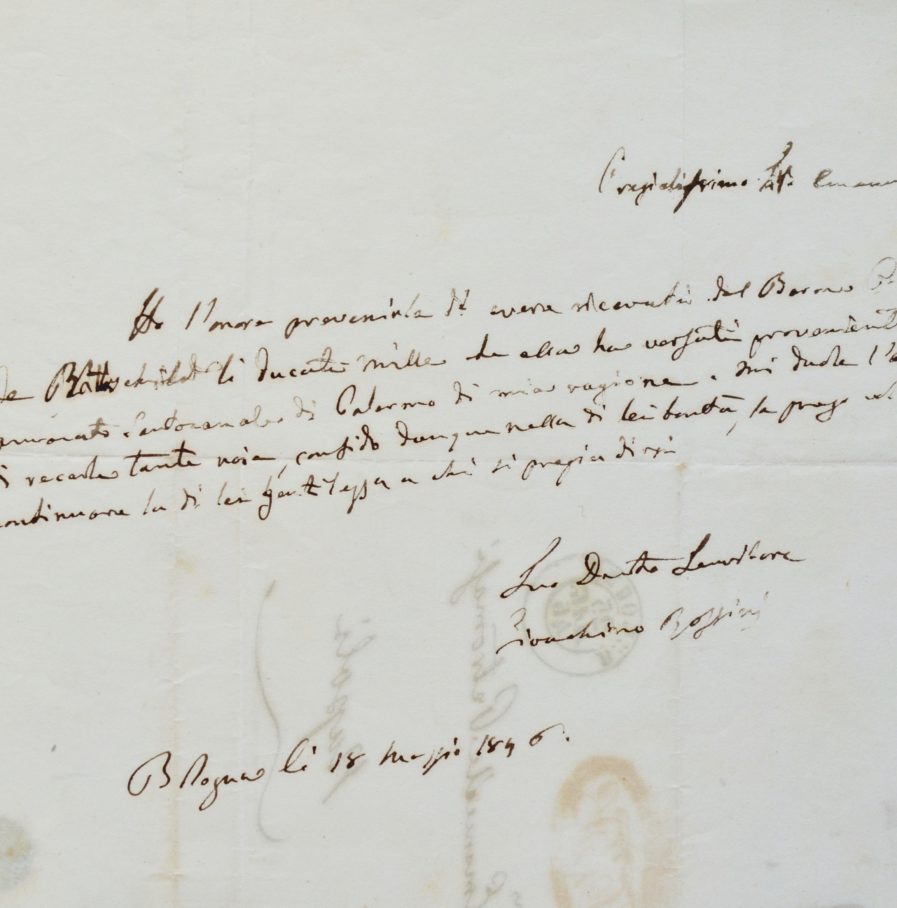 Pregiatissimo Sig.
Ho l'onore prevenirla di avere ricevuti dal Barone
de Rothschild li ducati mille che ella ha versati provenienti
di Palermo di mia ragione. Mi duole
di recarle tanta noia, confido dunque nella di lei bontà, la prego
continuare la di lei gentilezza a chi si pregia dirsi
Suo Devoto Servitore
Gioachino Rossini
Bologna li 18 Maggio 1846.